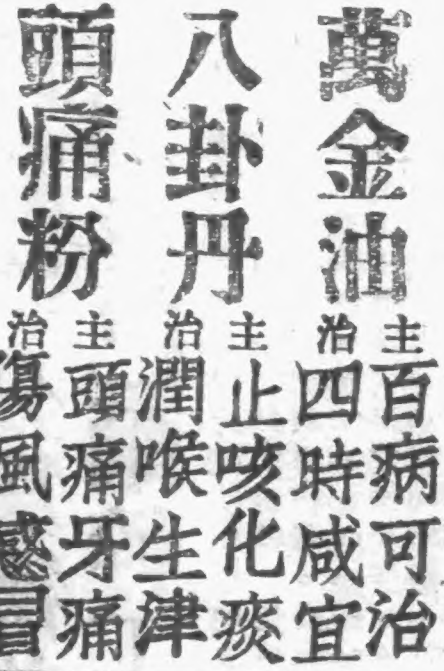 萬金油
主治
百病可治
四時咸宜
八卦丹
主治
止咳化痰
潤喉生津
頭痛粉
主治
頭痛牙痛
傷風感冒